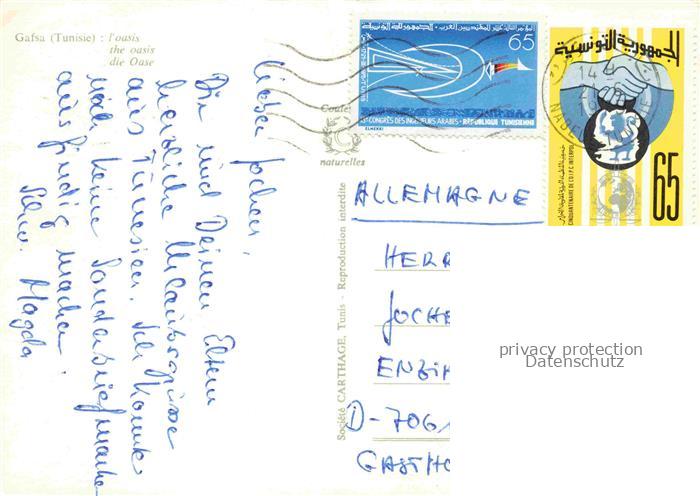 Gafsa (Tunisie) : l'oasis
the oasis
die Oase
Couleurs
naturelles
Société CARTHAGE, Tunis - Reproduction interdite
Lieber Jochen,
Dir und Deinen Eltern
herzliche Urlaubsgrüsse
aus Tunesien. Ich konnte
noch keine Sonderbriefmarke
ausfindig machen.
Magda
65
CONGRÈS DES INGENIEURS ARABES - RÉPUBLIQUE TUNISIENNE
ELMEKKI
الجمهورية التونسية
14
CINQUANTENAIRE DE L'O.I.P.C. INTERPOL
65
ALLEMAGNE
HERR
JOCHE
ENZI
D-706
GASTHO
privacy protection
Datenschutz